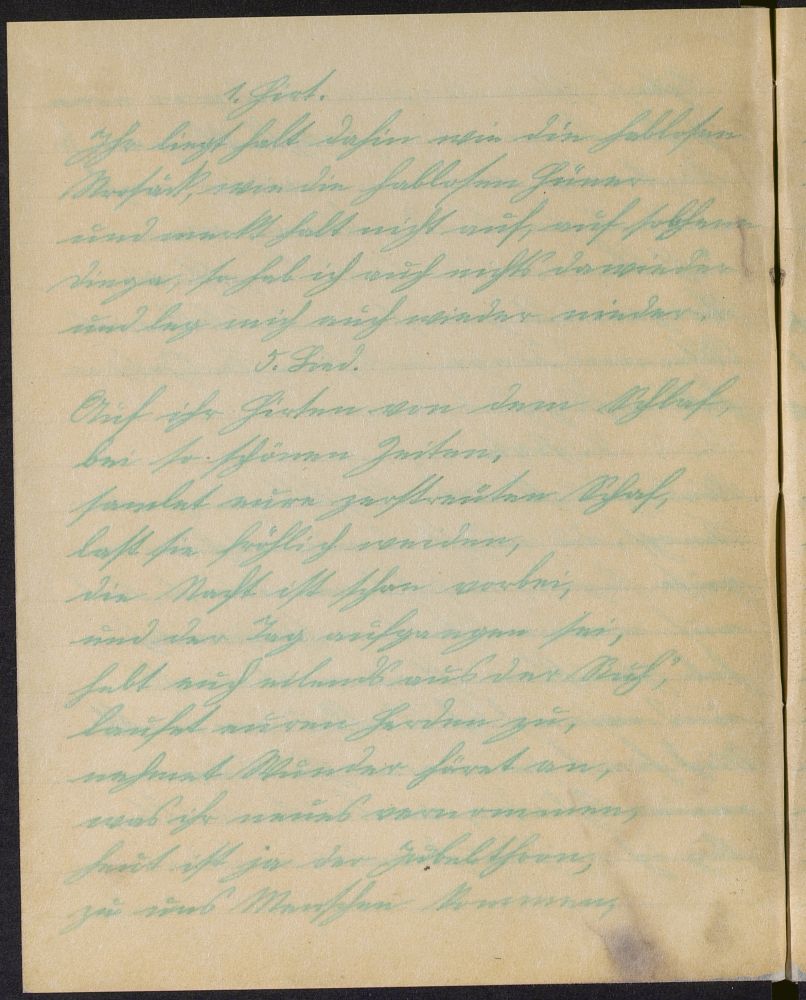 1. Hirt.
Ihr liegt halt dahin wie die hablosen
wie die hablosen Hüner
und merkt halt nicht auf, auf solchene
Dinge, so hab ich auch nichts dawieder
und leg mich auch wieder nieder.
5. Lied.
Auf ihr Hirten von dem Schlaf,
bei so schönen Zeiten,
samlet eure zerstreuten Schaf,
last sie fröhlich weiden,
die Nacht ist schon vorbei,
und der Tag aufgangen sei,
hebt euch eilends aus der Ruh',
laufet euren Herden zu,
nehmet Wunder höret an,
was ihr neues vernommen,
heut ist ja der Jubelthron,
zu uns Menschen kommen,